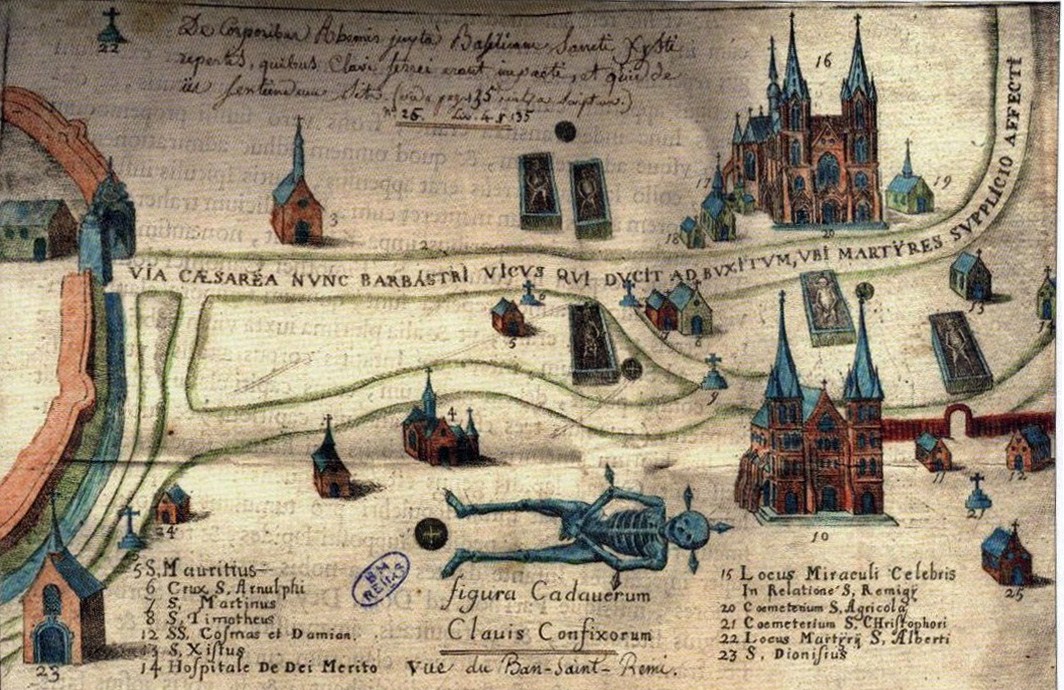 22
De Corporibus Ahenis juxta Basilicam Sancti Xysti
repertis, quibus Clavi ferrei erant impacti, et quid de
iis sentiendum sit. (vide pag. 35
n° 26. Liv. 4. § 135
16
17
18
19
20
3
VIA CÆSARÉA NVNC BARBÁSTRI VICVS QVI DVCIT AD BVXITVM, VBI MARTŸRES SVPPLICIO AFFECTI
5
6
7
8
9
13
14
4
10
11
12
21
24
25
23
BM
REIMS
5 S, Mauritius
6 Crux S, Arnulphi
7 S, Martinus
8 S, Timotheus
12 SS, Cosmas et Damian,
13 S, Xistus
14 Hospitale De Dei Merito
figura Cadaverum
Clauis Confixorum
Vue du Ban-Saint-Remi.
15 Locus Miraculi Celebris
In Relatione S, Remigÿ
20 Coemeterium S, Agricola
21 Coemeterium S, CHristophori
22 Locus Martyrÿ S, Alberti
23 S, Dionisius